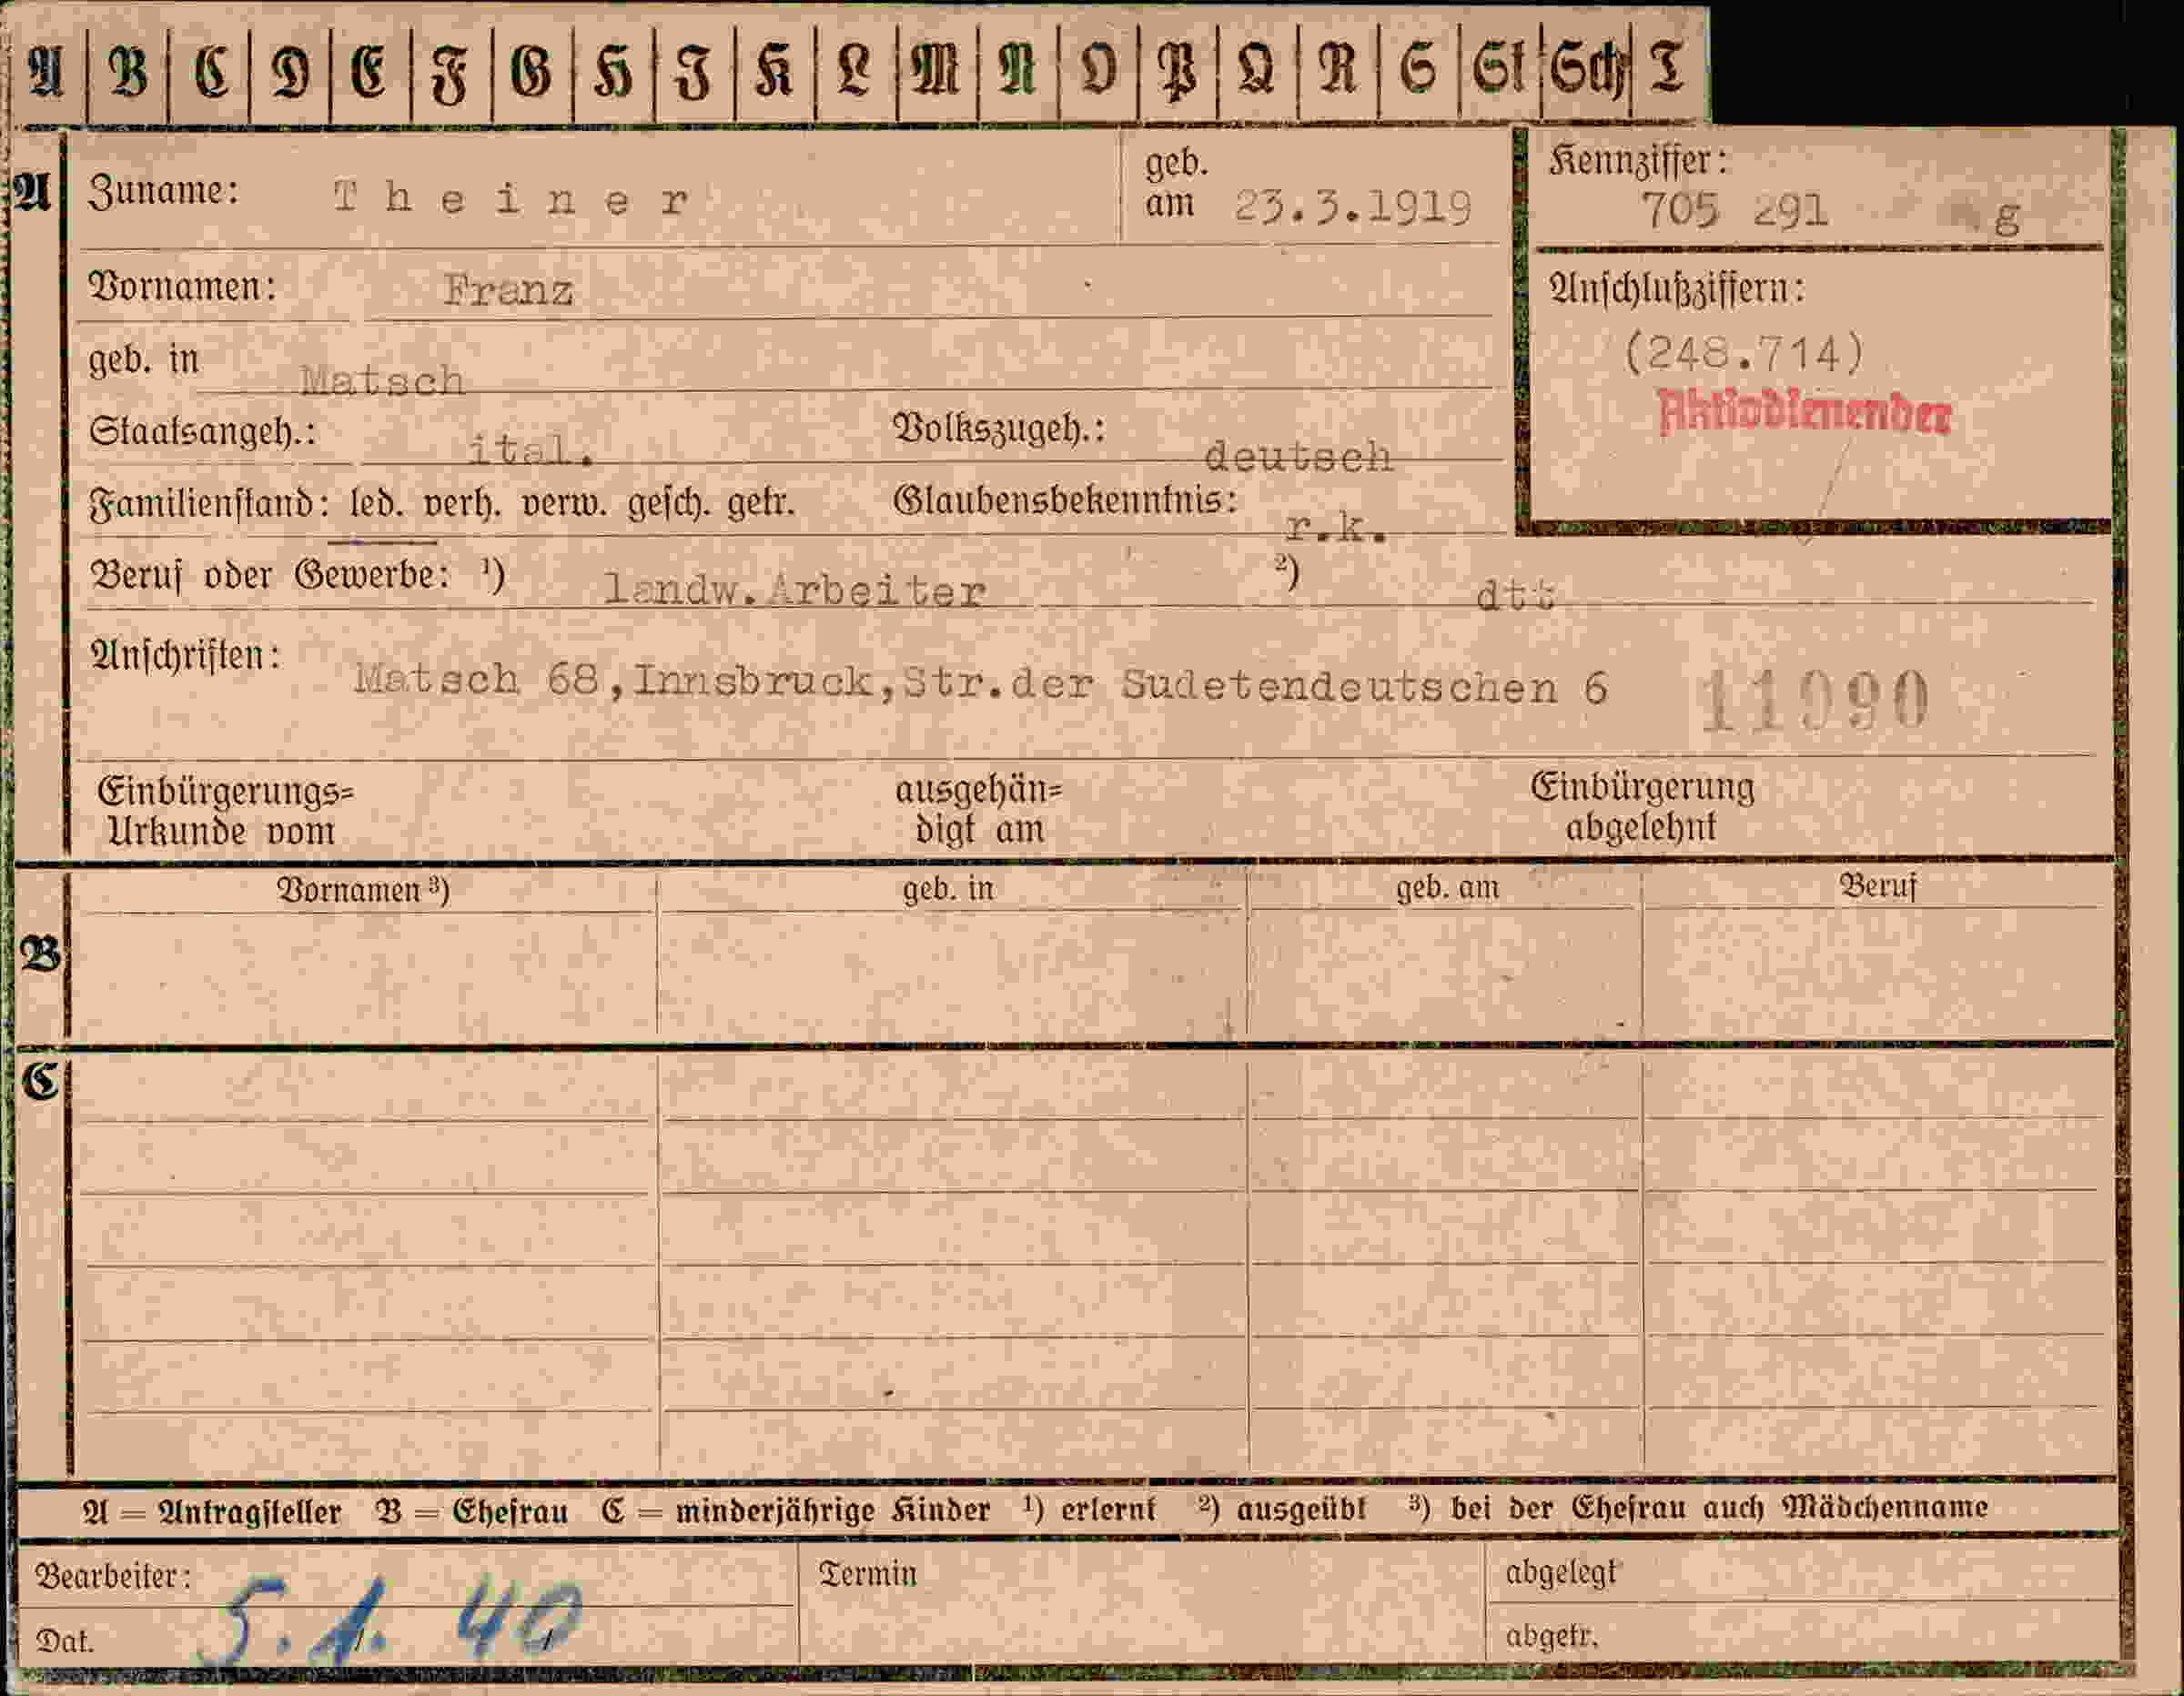 A B C D E F G H J K L M N O P Q R S St Sch T
A Zuname: Theiner geb. am 23.3.1919 Kennziffer: 705 291 g
Vornamen: Franz Anschlußziffern:
geb. in Matsch (248.714)
Aktivdienender
Staatsangeh.: ital. Volkszugeh.: deutsch
Familienstand: led. verh. verw. gesch. getr. Glaubensbekenntnis: r.k.
Beruf oder Gewerbe: ¹) landw.Arbeiter ²) dtt
Anschriften: Matsch 68,Innsbruck,Str.der Sudetendeutschen 6 11990
Einbürgerungs= ausgehän= Einbürgerung
Urkunde vom digt am abgelehnt
B Vornamen ³) geb. in geb. am Beruf
C
A = Antragsteller B = Ehefrau C = minderjährige Kinder ¹) erlernt ²) ausgeübt ³) bei der Ehefrau auch Mädchenname
Bearbeiter: Termin abgelegt
Dat. 5.1.40 abgetr.